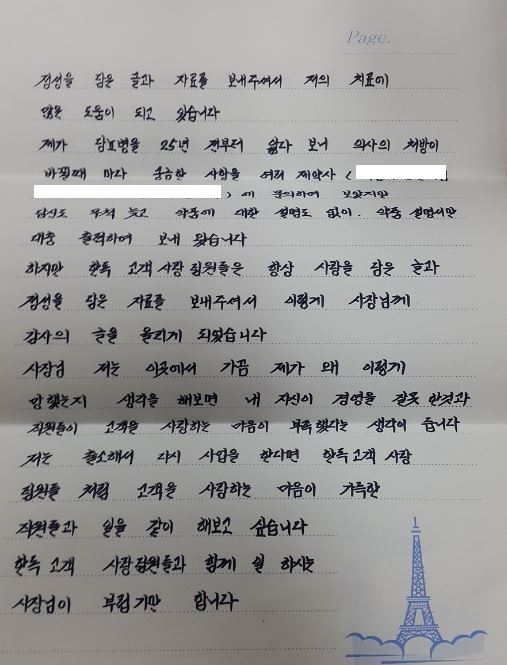 Page.
정성을 담은 글과 자료를 보내주셔서 저의 치료에
많은 도움이 되고 있습니다
제가 당뇨병을 25년 전부터 앓다 보니 의사의 처방이
바뀔때 마다 궁금한 사항을 여러 제약사 (
) 에 문의하여 보았지만
답신도 무척 늦고 약품에 대한 설명도 없이. 약품 설명서만
대충 출력하여 보내 왔습니다
하지만 한독 고객 사랑 직원들은 항상 사랑을 담은 글과
정성을 담은 자료를 보내주셔서 이렇게 사장님께
감사의 글을 올리게 되었습니다
사장님 저는 이곳에서 가끔 제가 왜 이렇게
망했는지 생각을 해보면 내 자신이 경영을 잘못 한것과
직원들이 고객을 사랑하는 마음이 부족했다는 생각이 듭니다
저는 출소해서 다시 사업을 한다면 한독 고객 사랑
직원들 처럼 고객을 사랑하는 마음이 가득한
직원들과 일을 같이 해보고 싶습니다
한독 고객 사랑 직원들과 함께 일 하시는
사장님이 부럽기만 합니다